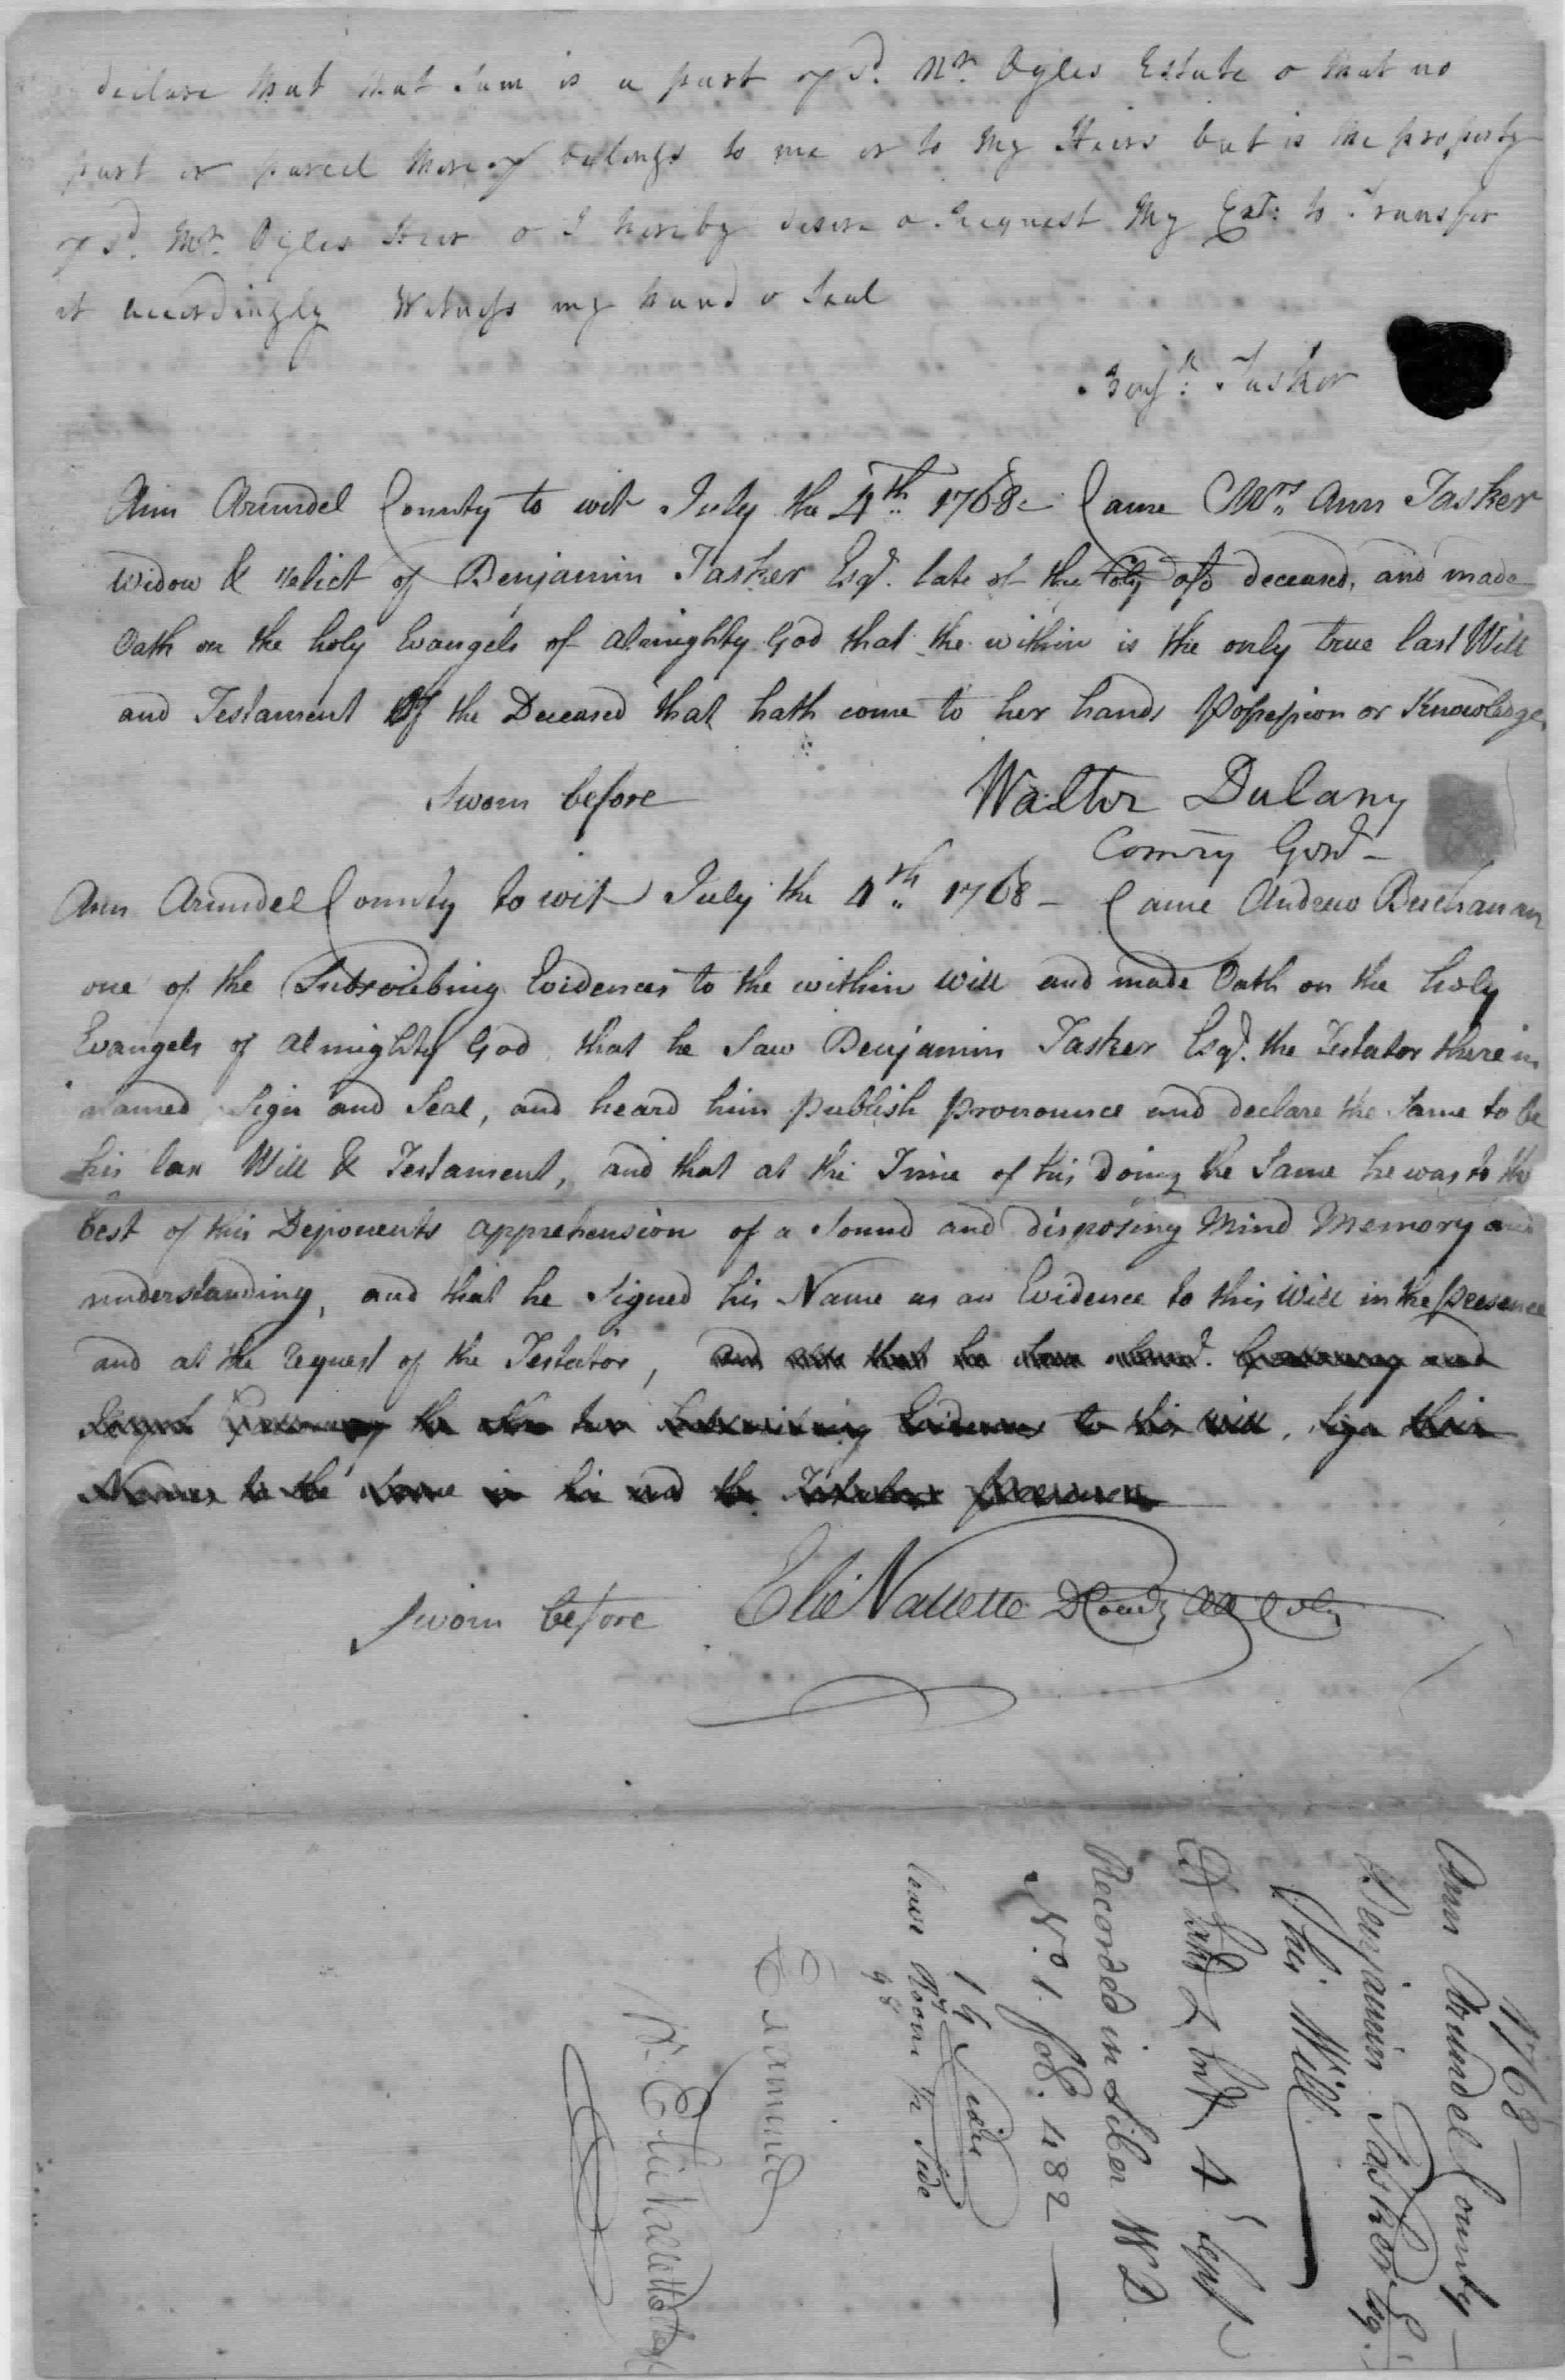 declare that that Sum is a part of sd. Mr. Ogles Estate & that no
part or parcel thereof belongs to me or to My Heirs but is the property
of sd. Mr. Ogles Heir & I hereby desire & request My Exrs: to Transfer
it accordingly Witness my hand & Seal
Benjn: Tasker
Ann Arundel County to wit July the 4th 1768 – Came Mrs. Ann Tasker
Widow & relict of Benjamin Tasker Esqr. late of the Coty afd deceased, and made
Oath on the holy Evangels of almighty God that the within is the only true last Will
and Testament Of the Deceased that hath come to her hands Possession or Knowledge,
Sworn before Walter Dulany
Comry Genl –
Ann Arundel County to wit July the 4th 1768 – Came Andrew Buchanan
one of the Subscribing Evidences to the within Will and made Oath on the holy
Evangels of almighty God, that he Saw Benjamin Tasker Esqr. the Testator therein
named Sign and Seal, and heard him publish pronounce and declare the Same to be
his last Will & Testament, and that at the Time of his doing the Same he was to the
best of this Deponents apprehension of a Sound and disposing Mind Memory and
understanding, and that he Signed his Name as an Evidence to this Will in the presence
and at the request of the Testator, and also that he saw and
the other two Subscribing Evidences to this Will, Sign their
Names to the Same in his and the Testators presence
Sworn before Elie Vallette DComry AA Coty
1768
Ann Arundel County
Benjamin Tasker Esq.
His Will
4 Sepr
Recorded in Liber W D
No. 1. fol. 482
14 Sides
leave Room 1/2 Side
98
Examined
Pr Elie Vallette